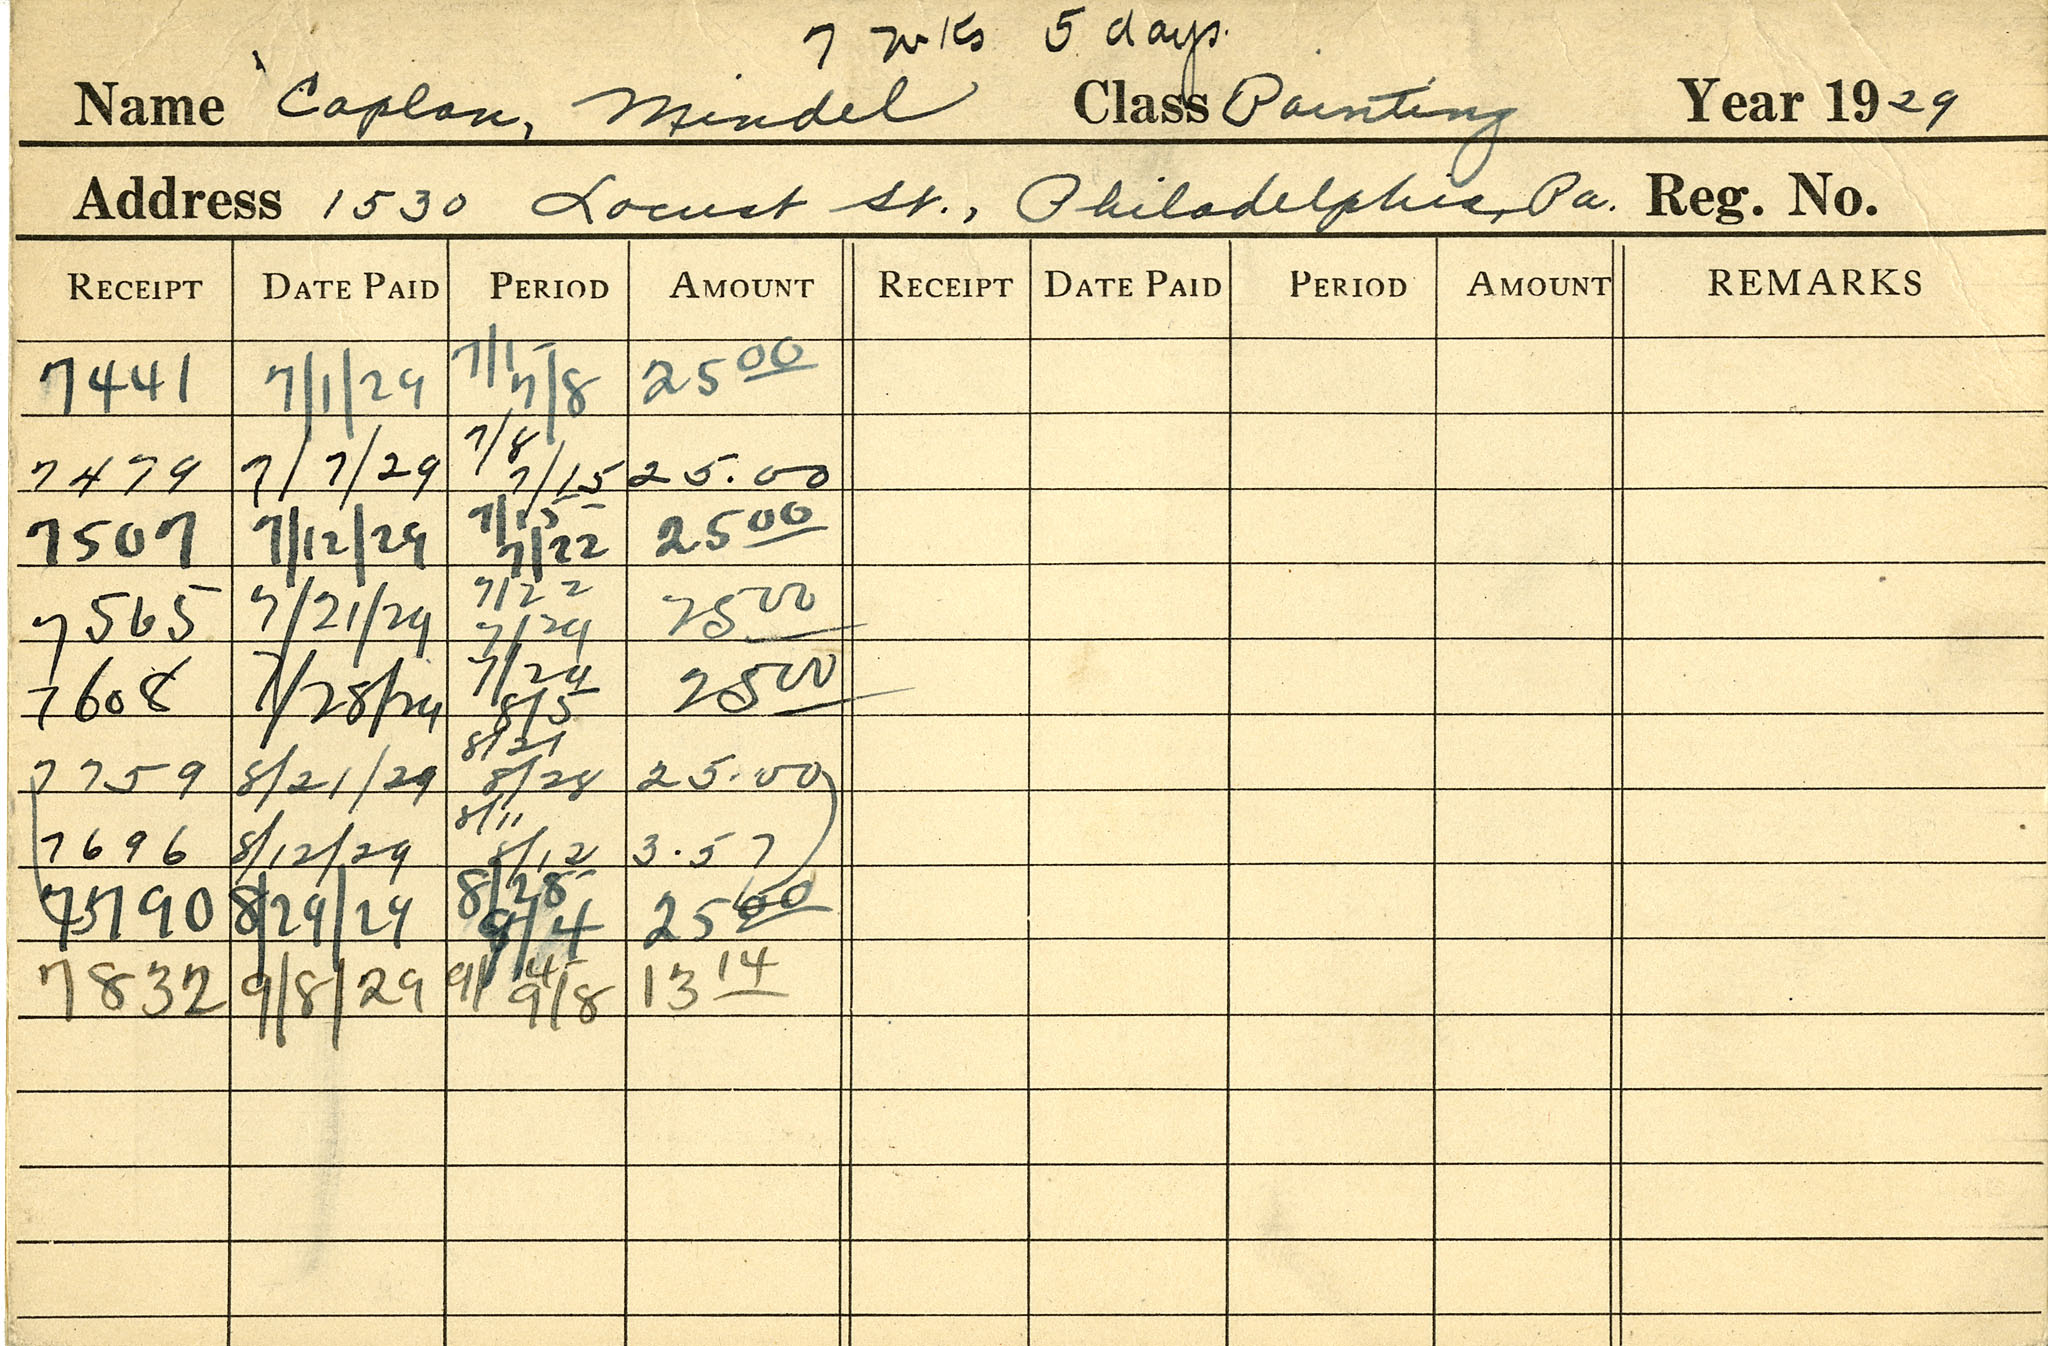 7 wks 5 days.
Name Caplan, Mindel Class Painting Year 1929
Address 1530 Locust St., Philadelphia, Pa. Reg. No.
RECEIPT DATE PAID PERIOD AMOUNT RECEIPT DATE PAID PERIOD AMOUNT REMARKS
7441 7/1/29 7/1- 7/8 25 00
7479 7/7/29 7/8 7/15 25.00
7507 7/12/29 7/15- 7/22 25 00
7565 7/21/29 7/22 7/29 25 00
7608 7/28/29 7/29 8/5 25 00
7759 8/21/29 8/21 8/28 25.00
7696 8/12/29 8/11 8/12 3.57
7790 8/29/29 8/28- 9/4 25 00
7832 9/8/29 9/4- 9/8 13 14